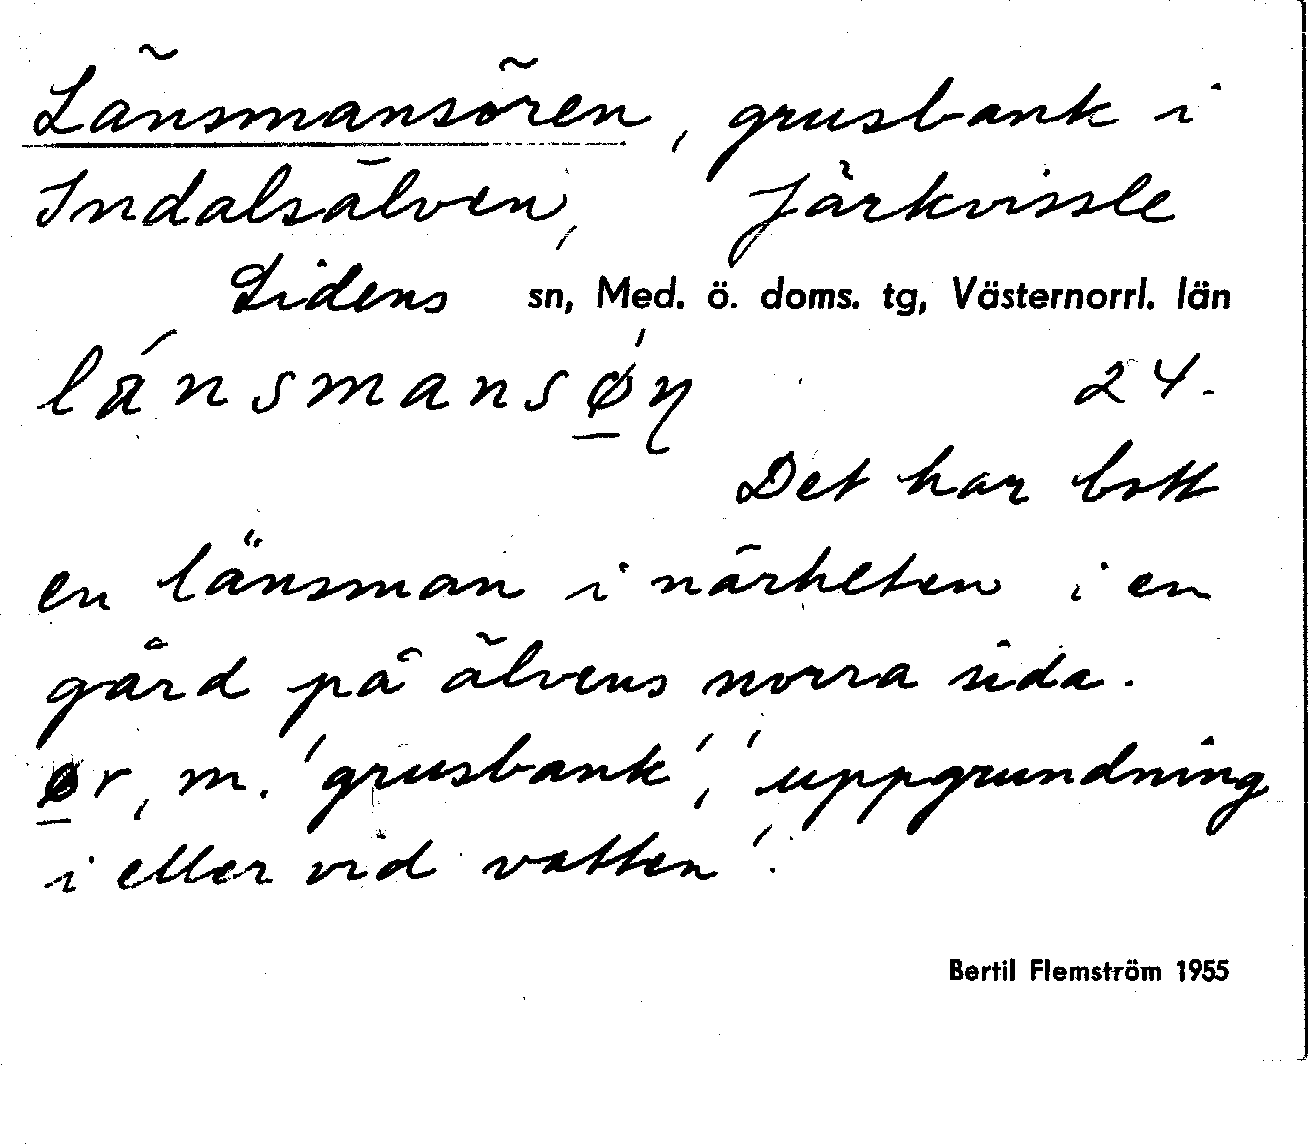 Länsmansören, grusbank i
Indalsälven, Järkvissle
Lidens sn, Med. ö. doms. tg, Västernorrl. län
lánsmansǿ̱ŋ 24.
Det har bott
en länsman i närheten i en
gård på älvens norra sida.
ø̱r, m. 'grusbank', 'uppgrundning
i eller vid vatten'.
Bertil Flemström 1955